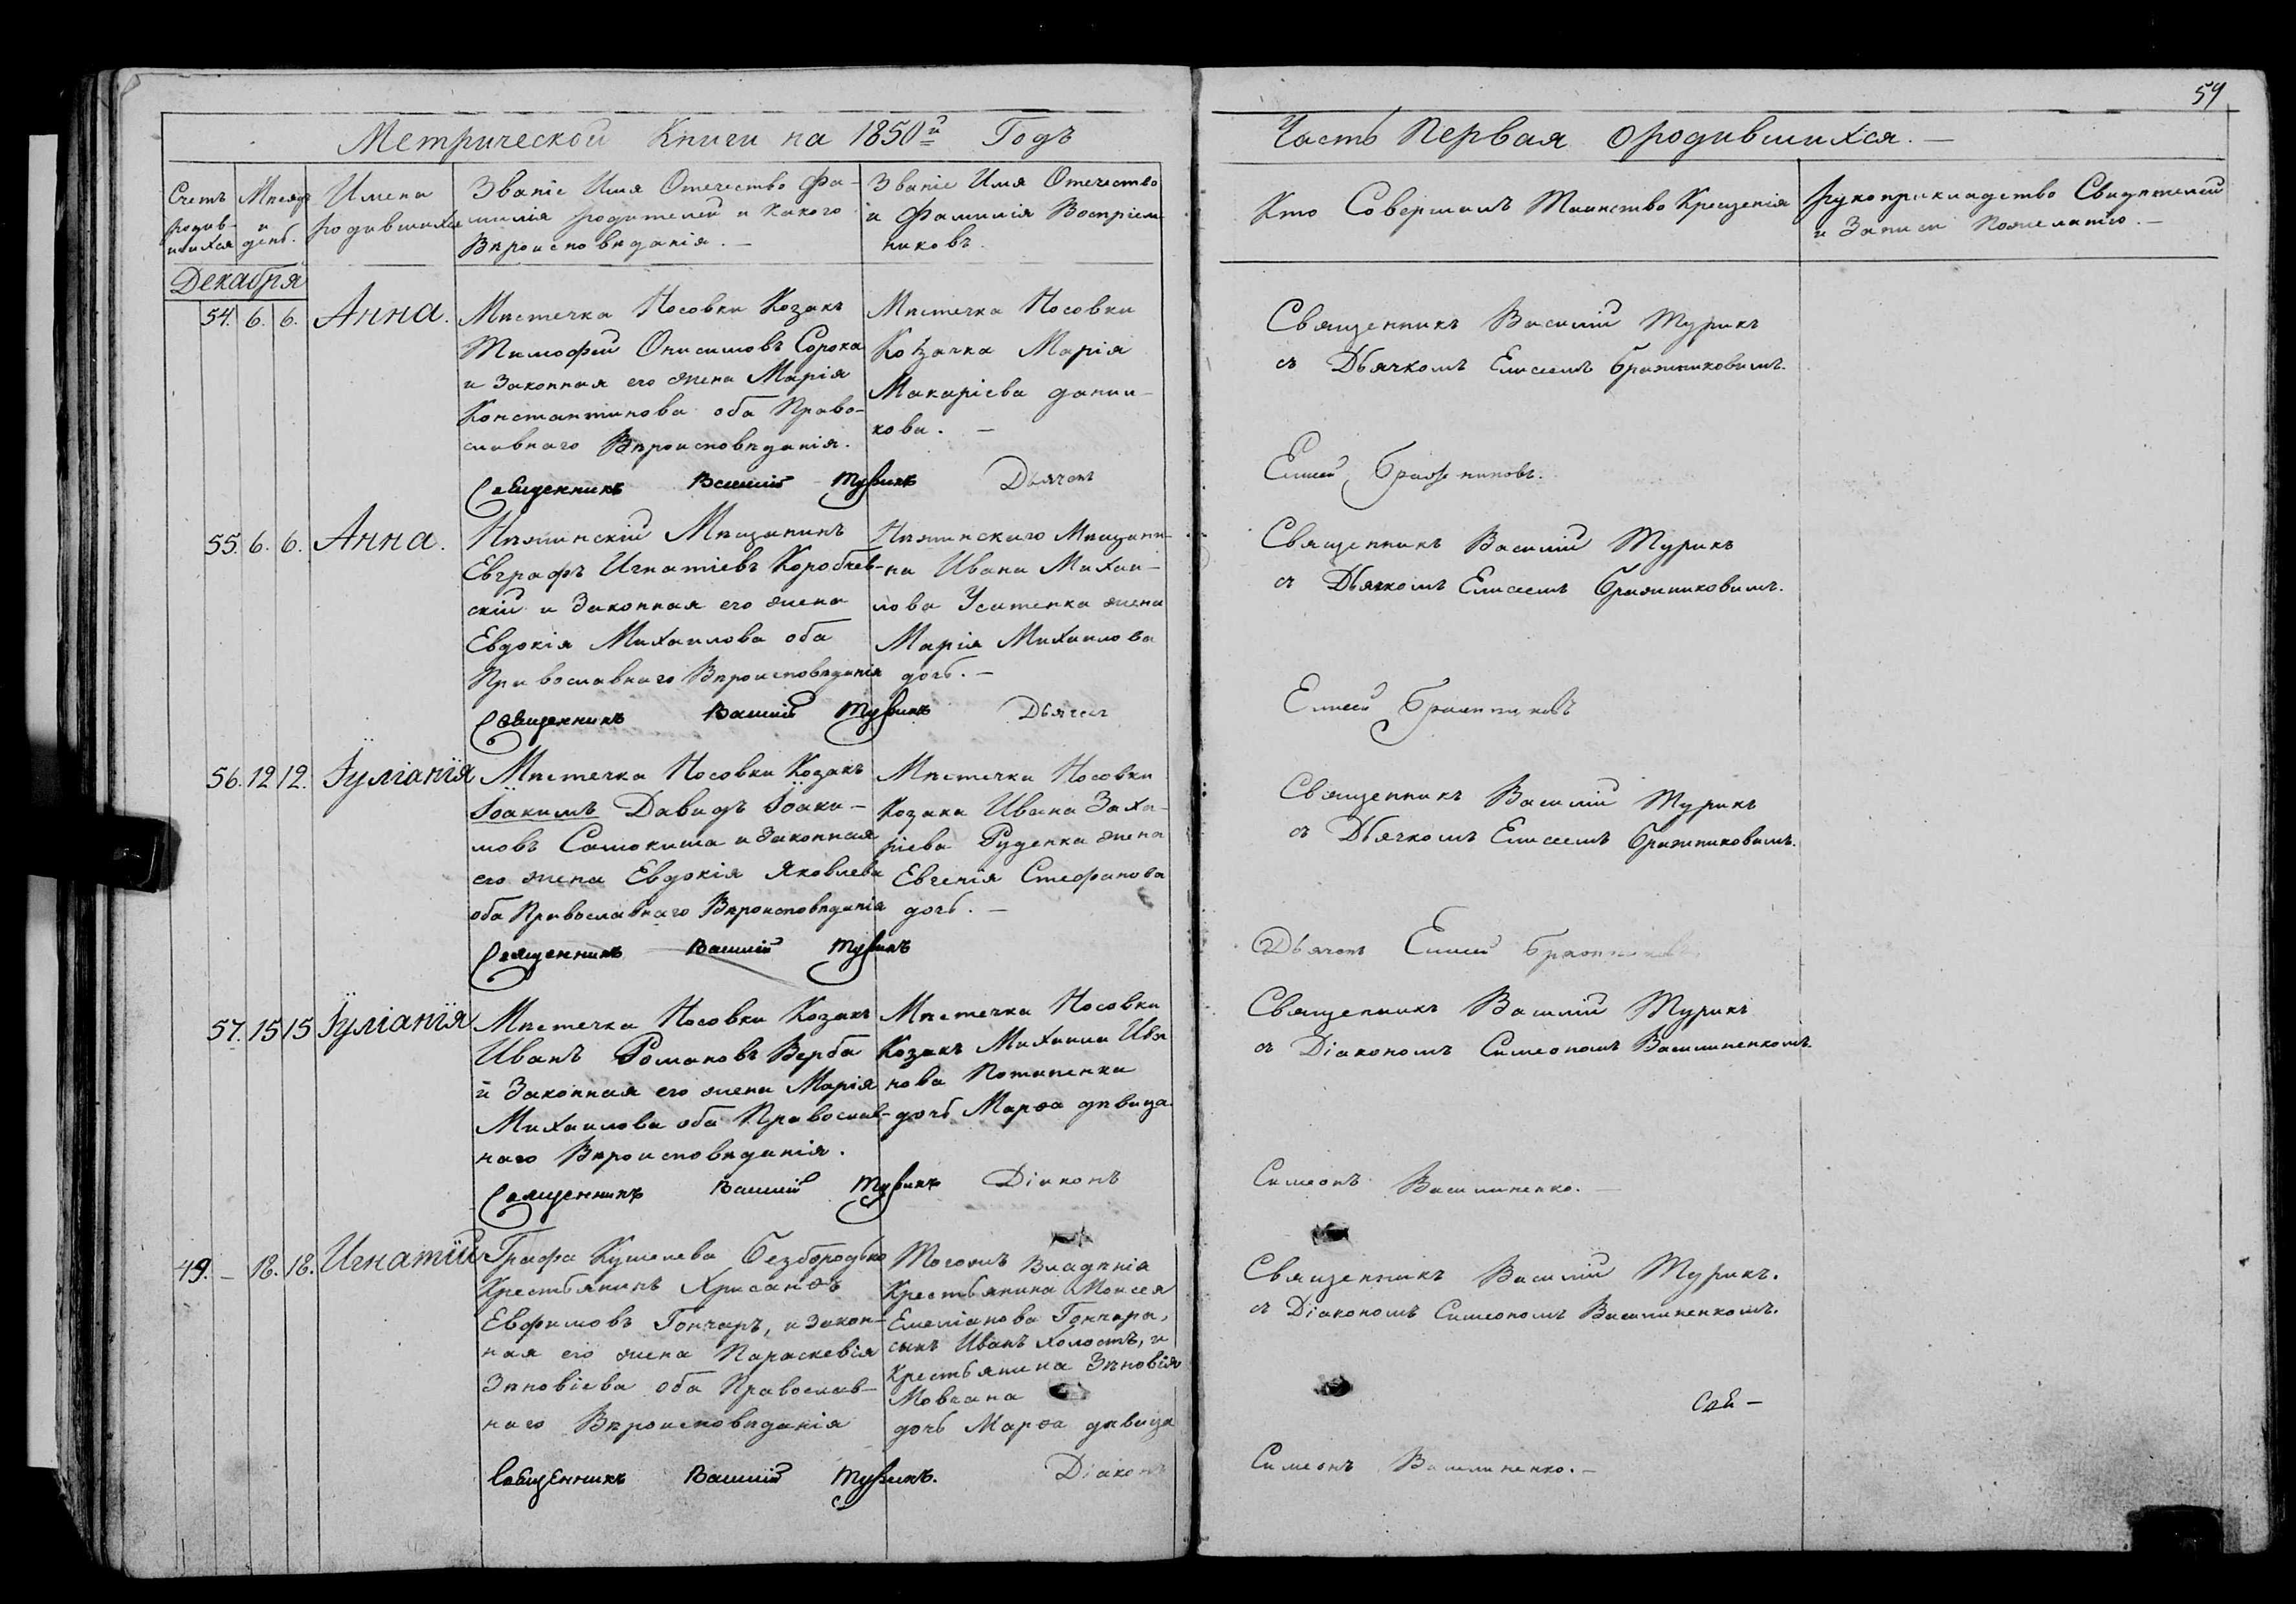 59
Метрической Книги на 1850й Годъ
Часть Первая ородившихся. —
Счетъ родив-шихся
Мѣсяцъ и день.
Имена родившихся
Званіе Имя Отечество Фа-
милія родителей и Какого
Вѣроисповѣданія. —
Званіе Имя Отечество
и Фамилія Воспріем
никовъ.
Кто Совершалъ Таинство Крещенія
рукоприкладство Свидѣтелей
и Записи Пожеланію. —
Декабря
54. 6. 6. Анна.
Мѣстечка Носовки Козакъ
Тимофей Онисимовъ Сорока
и Законная его жена Марія
Константинова оба Право-
славнаго Вѣроисповѣданія.
Мѣстечка Носовки
Козачка Марія
Макаріева
кова. —
Священникъ Василій Турикъ
съ Дьячкомъ Елисеемъ Бражниковимъ.
Священникъ Василій Турикъ Дьячокъ
Елисей Бражниковъ.
55. 6. 6. Анна.
Нѣжинскій Мѣщанинъ
Евграфъ Игнатіевъ Коробчев-
скій и Законная его жена
Евдокія Михаилова оба
Православнаго Вѣроисповѣданія
Нѣжинскаго Мѣщани-
на Ивана Михаи-
лова Усатенка жена
Марія Михаилова
дочь. —
Священникъ Василій Турикъ
съ Дьячкомъ Елисеемъ Бражниковимъ.
Священникъ Василій Турикъ Дьячокъ
Елисей Бражниковъ
56. 12 12. Іуліанія
Мѣстечка Носовки Козакъ
Іоакимъ Давидъ Іоаки-
мовъ Самокиша и Законная
его жена Евдокія Яковлева
оба Православнаго Вѣроисповѣданія
Мѣстечка Носовки
Козака Ивана Заха-
ріева Руденка жена
Евгенія Стефанова
дочь. —
Священникъ Василій Турикъ
съ Дьячкомъ Елисеемъ Бражниковимъ.
Священникъ Василій Турикъ
Дьячокъ Елисей Бражниковъ
57. 15 15 Іуліанія
Мѣстечка Носовки Козакъ
Иванъ Романовъ Верба
и Законная его жена Марія
Михаилова оба Православ-
наго Вѣроисповѣданія.
Мѣстечка Носовки
Козакъ Михаила Ива
нова Потапенка
дочь Марѳа дѣвица
Священникъ Василій Турикъ
съ Діакономъ Симеономъ Василиненкомъ.
Священникъ Василій Турикъ Діаконъ
Симеонъ Василиненко. —
49. — 18. 18. Игнатій
Графа Кушелева Безбородько
Крестьянинъ Хрисанѳъ
Евфимовъ Гончаръ, и закон-
ная его жена Параскевія
Зѣновіева оба Православ-
наго Вѣроисповѣданія
Тогожъ Владѣнія
Крестьянина Моисея
Емеліанова Гончара,
сынъ Иванъ холостъ, и
Крестьянина Зѣновія
Мовчана
дочь Марѳа дѣвица
Священникъ Василій Турикъ.
съ Діакономъ Симеономъ Василиненкомъ.
Священникъ Василій Турикъ. Діаконъ
Симеонъ Василиненко. —